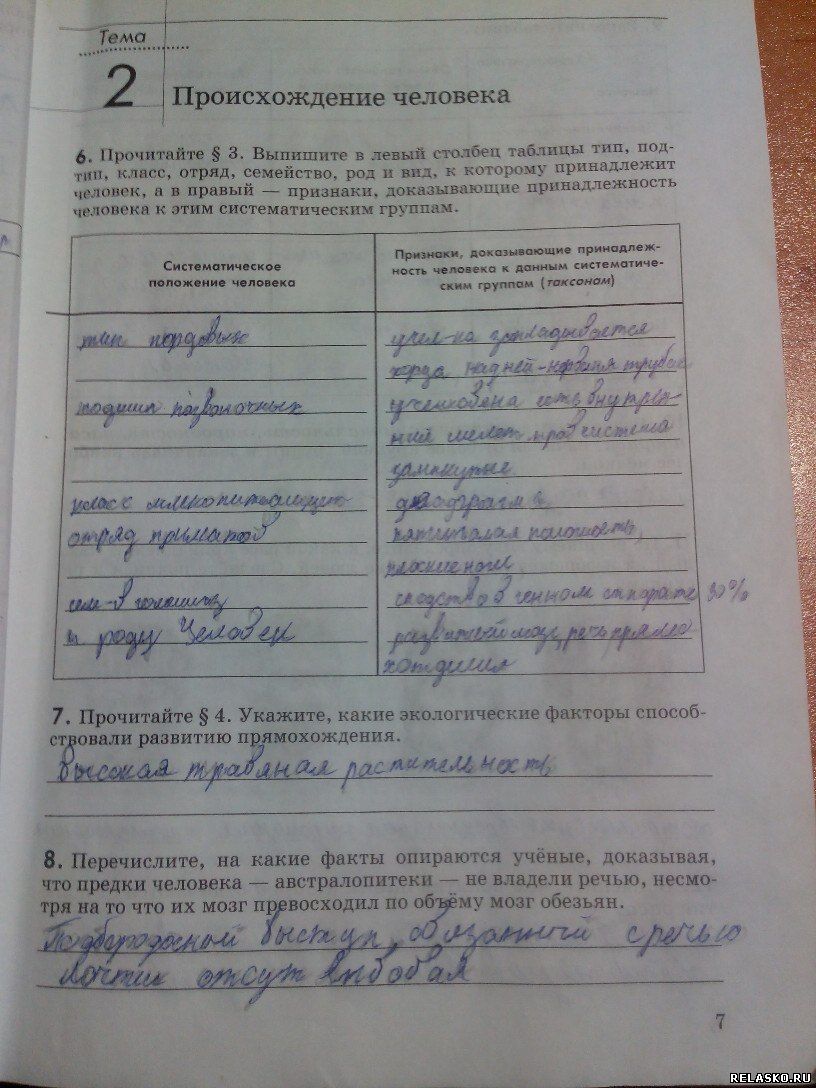 Тема
2
Происхождение человека
6. Прочитайте § 3. Выпишите в левый столбец таблицы тип, под-
тип, класс, отряд, семейство, род и вид, к которому принадлежит
человек, а в правый — признаки, доказывающие принадлежность
человека к этим систематическим группам.
Систематическое
положение человека
Признаки, доказывающие принадлеж-
ность человека к данным систематиче-
ским группам (таксонам)
тип
закладывается
хорда трубка
подтип позвоночных
есть внутрен-
ний
замкнутые
класс
отряд приматов
плоские ногти
сходство в 90%
к роду Человек
развитый мозг, речь прямо
7. Прочитайте § 4. Укажите, какие экологические факторы способ-
ствовали развитию прямохождения.
Высокая травяная растительность
8. Перечислите, на какие факты опираются учёные, доказывая,
что предки человека — австралопитеки — не владели речью, несмо-
тря на то что их мозг превосходил по объёму мозг обезьян.
Подбородочный выступ, связанный с речью
почти
7
RELASKO.RU